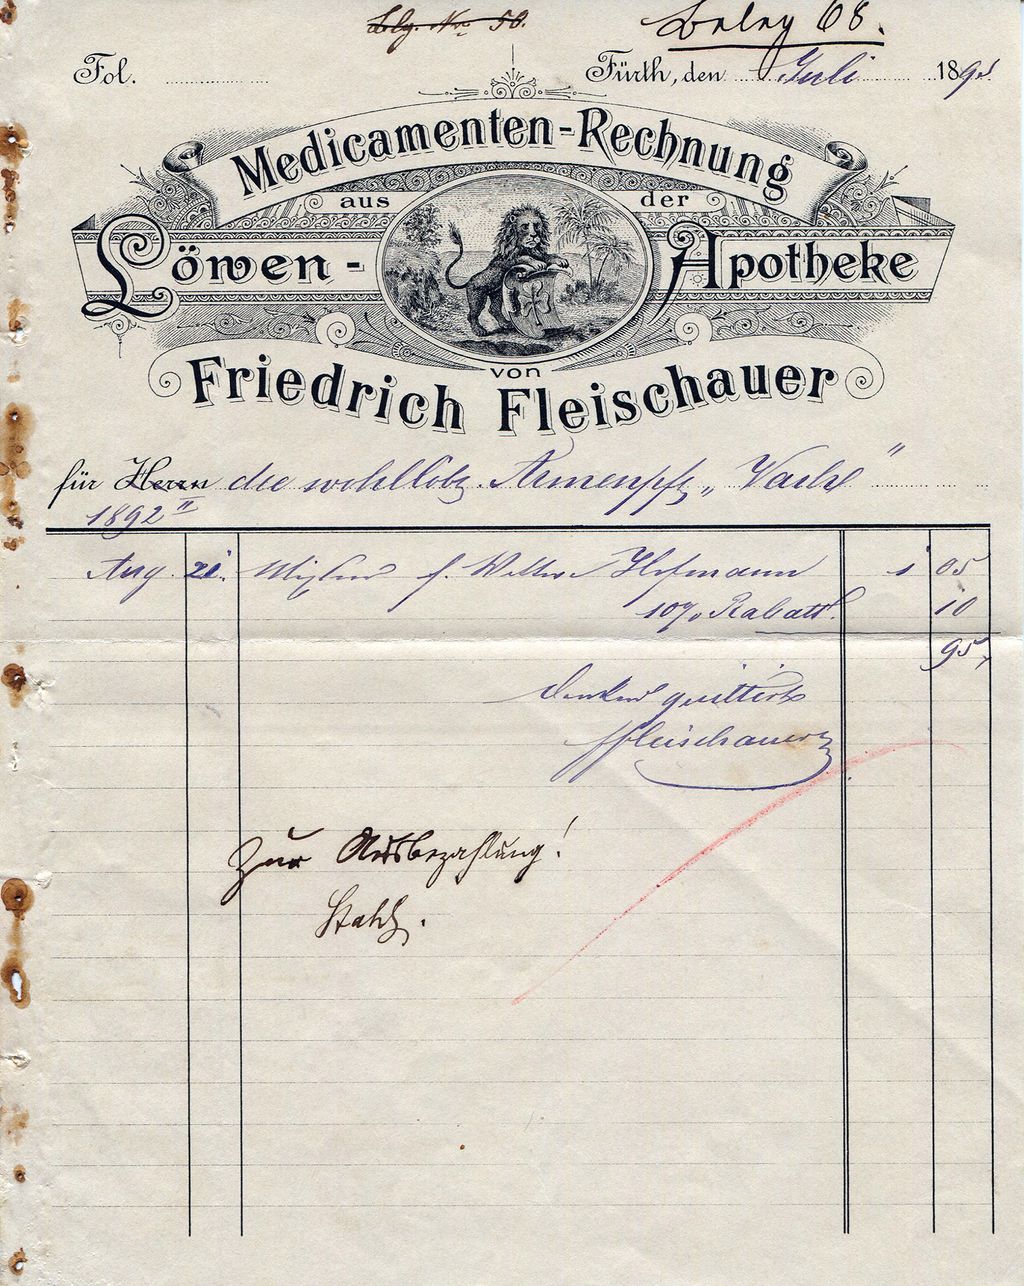 Blg. No. 50.
Beleg 68.
Fol.
Fürth, den Juli 189
Medicamenten-Rechnung
aus der
Löwen-Apotheke
von
Friedrich Fleischauer
für Herrn die wohllöbl. Armenpfl „Vach"
1892 II
Aug. 21. Mixtur f. Hofmann 1 05
10% Rabatt. 10
95
dankend quittirt
FFleischauer
Zur Ausbezahlung!
Stahl.